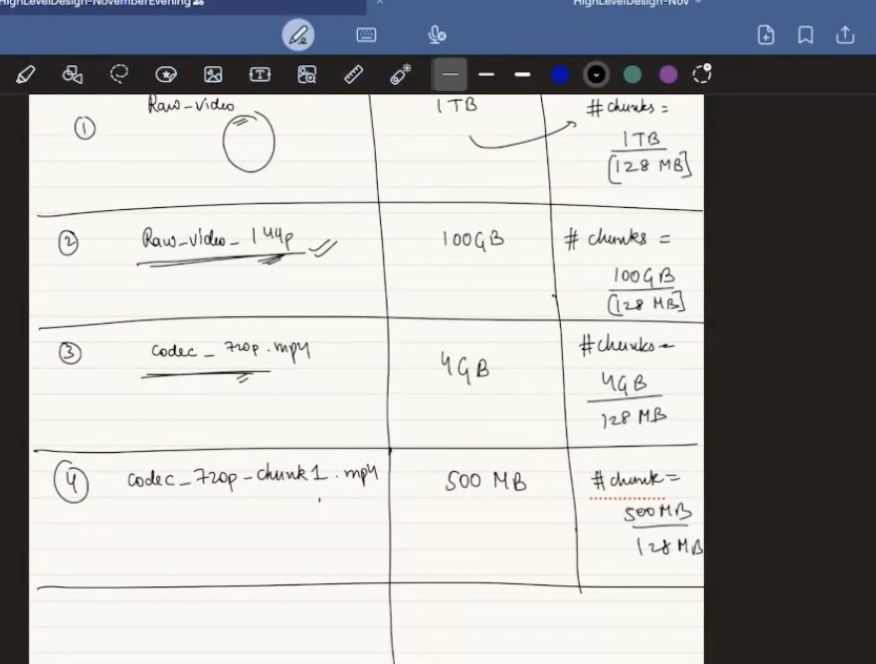 HighLevelDesign-NovemberEvening
HighLevelDesign-Nov
① Raw-video 1TB # chunks =
1TB
[128 MB]
② Raw_video_144p 100GB # chunks =
100GB
[128 MB]
③ codec_720p.mp4 4GB #chunks=
4GB
128 MB
④ codec_720p-chunk1.mp4 500 MB #chunk=
500MB
128 MB